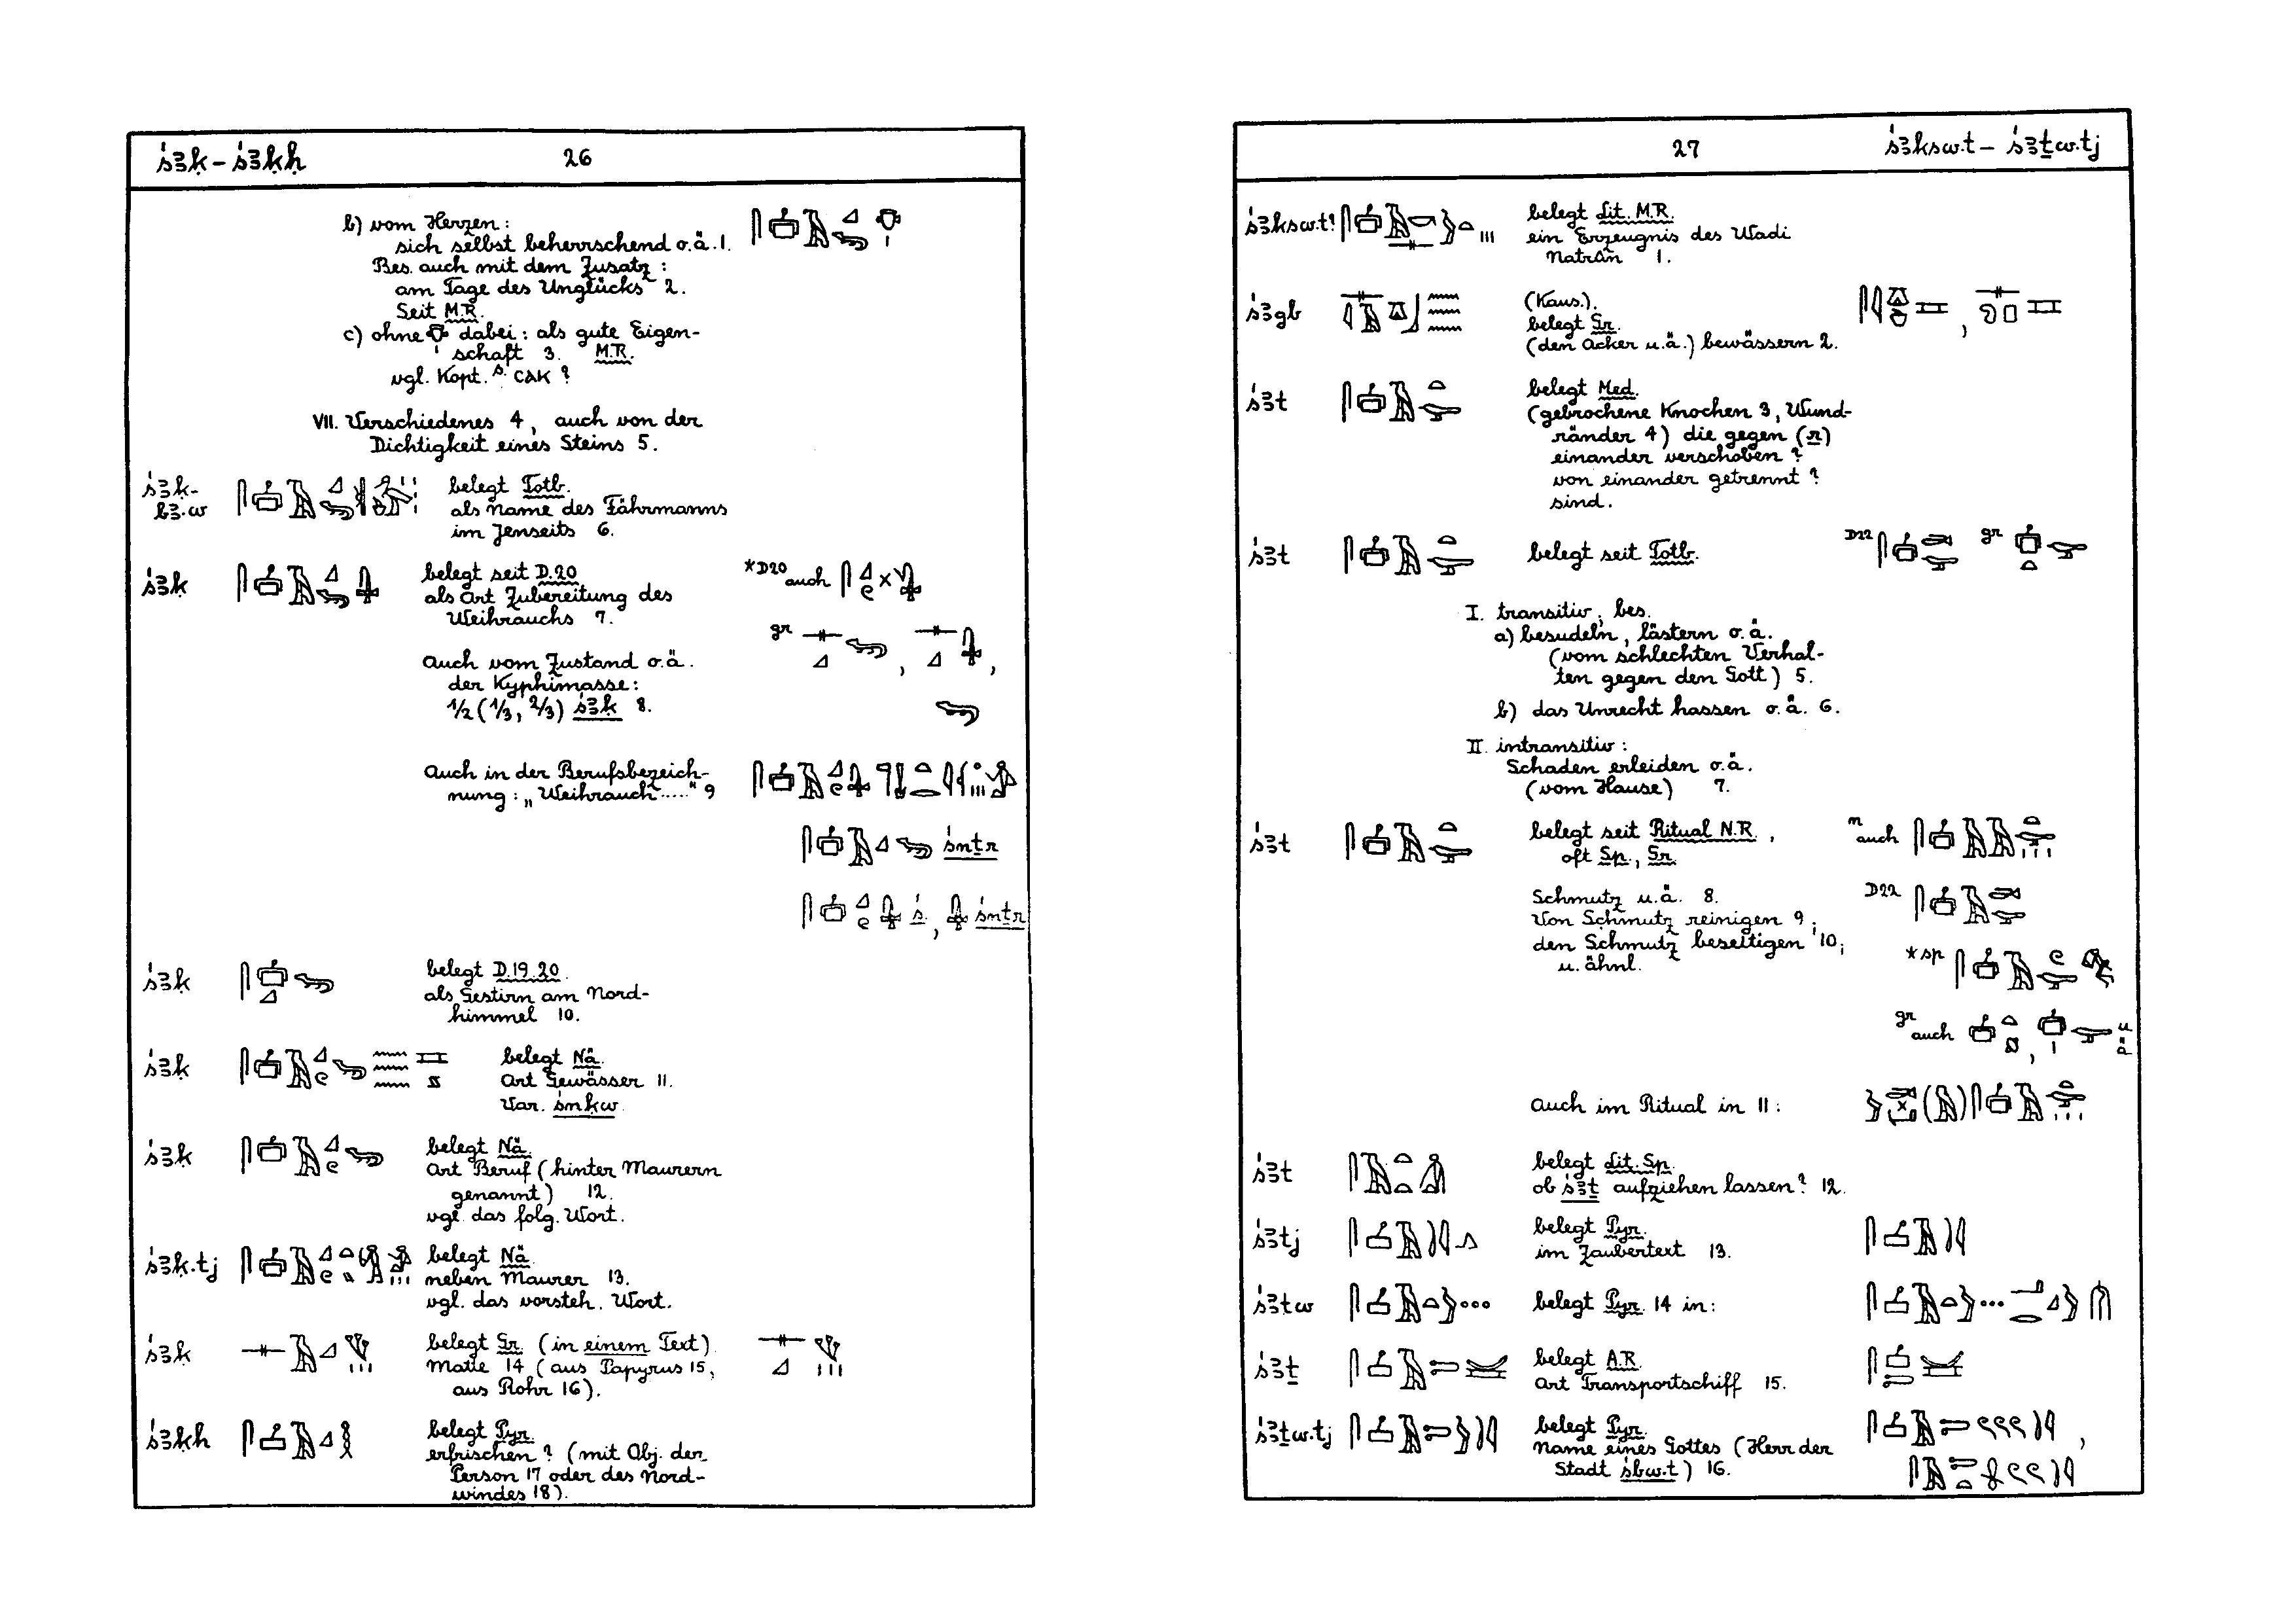 ś3ḳ – ś3ḳḥ 26
b) vom Herzen:
sich selbst beherrschend o.ä. 1.
Bes. auch mit dem Zusatz:
am Tage des Unglücks 2.
Seit M.R.
c) ohne dabei: als gute Eigen-
schaft 3. M.R.
vgl. Kopt. S. CAK ?
VII. Verschiedenes 4, auch von der
Dichtigkeit eines Steins 5.
ś3ḳ- belegt Totb.
b3.w als Name des Fährmanns
im Jenseits 6.
ś3ḳ belegt seit D.20 *D20 auch
als Art Zubereitung des
Weihrauchs 7. gr
Auch vom Zustand o.ä.
der Kyphimasse:
1/2 (1/3, 2/3) ś3ḳ 8.
Auch in der Berufsbezeich-
nung: „Weihrauch....." 9
śnṯr
ś., śnṯr
ś3ḳ belegt D.19.20.
als Gestirn am Nord-
himmel 10.
ś3ḳ belegt Nä.
Art Gewässer 11.
Var. śnḳw.
ś3ḳ belegt Nä.
Art Beruf (hinter Maurern
genannt) 12.
vgl. das folg. Wort.
ś3ḳ.tj belegt Nä.
neben Maurer 13.
vgl. das vorsteh. Wort.
ś3ḳ belegt Gr. (in einem Text)
Matte 14 (aus Papyrus 15,
aus Rohr 16).
ś3ḳḥ belegt Pyr.
erfrischen? (mit Obj. der
Person 17 oder des Nord-
windes 18).
27 ś3ksw.t – ś3ṯw.tj
ś3ksw.t? belegt Lit. M.R.
ein Erzeugnis des Wadi
Natrûn 1.
ś3gb (Kaus.).
belegt Gr.
(den Acker u.ä.) bewässern 2.
ś3t belegt Med.
(gebrochene Knochen 3, Wund-
ränder 4) die gegen (r)
einander verschoben?
von einander getrennt?
sind.
ś3t belegt seit Totb. D22 gr
I. transitiv, bes.
a) besudeln, lästern o.ä.
(vom schlechten Verhal-
ten gegen den Gott) 5.
b) das Unrecht hassen o.ä. 6.
II. intransitiv:
Schaden erleiden o.ä.
(vom Hause) 7.
ś3t belegt seit Ritual N.R., n auch
oft Sp., Gr.
Schmutz u.ä. 8. D22
Von Schmutz reinigen 9;
den Schmutz beseitigen 10;
u. ähnl. *sp
gr auch , u ä
Auch im Ritual in 11:
ś3t belegt Lit. Sp.
ob ś3ṯ aufziehen lassen? 12.
ś3tj belegt Pyr.
im Zaubertext 13.
ś3tw belegt Pyr. 14 in:
ś3ṯ belegt A.R.
Art Transportschiff 15.
ś3ṯw.tj belegt Pyr.
Name eines Gottes (Herr der
Stadt śbw.t) 16.